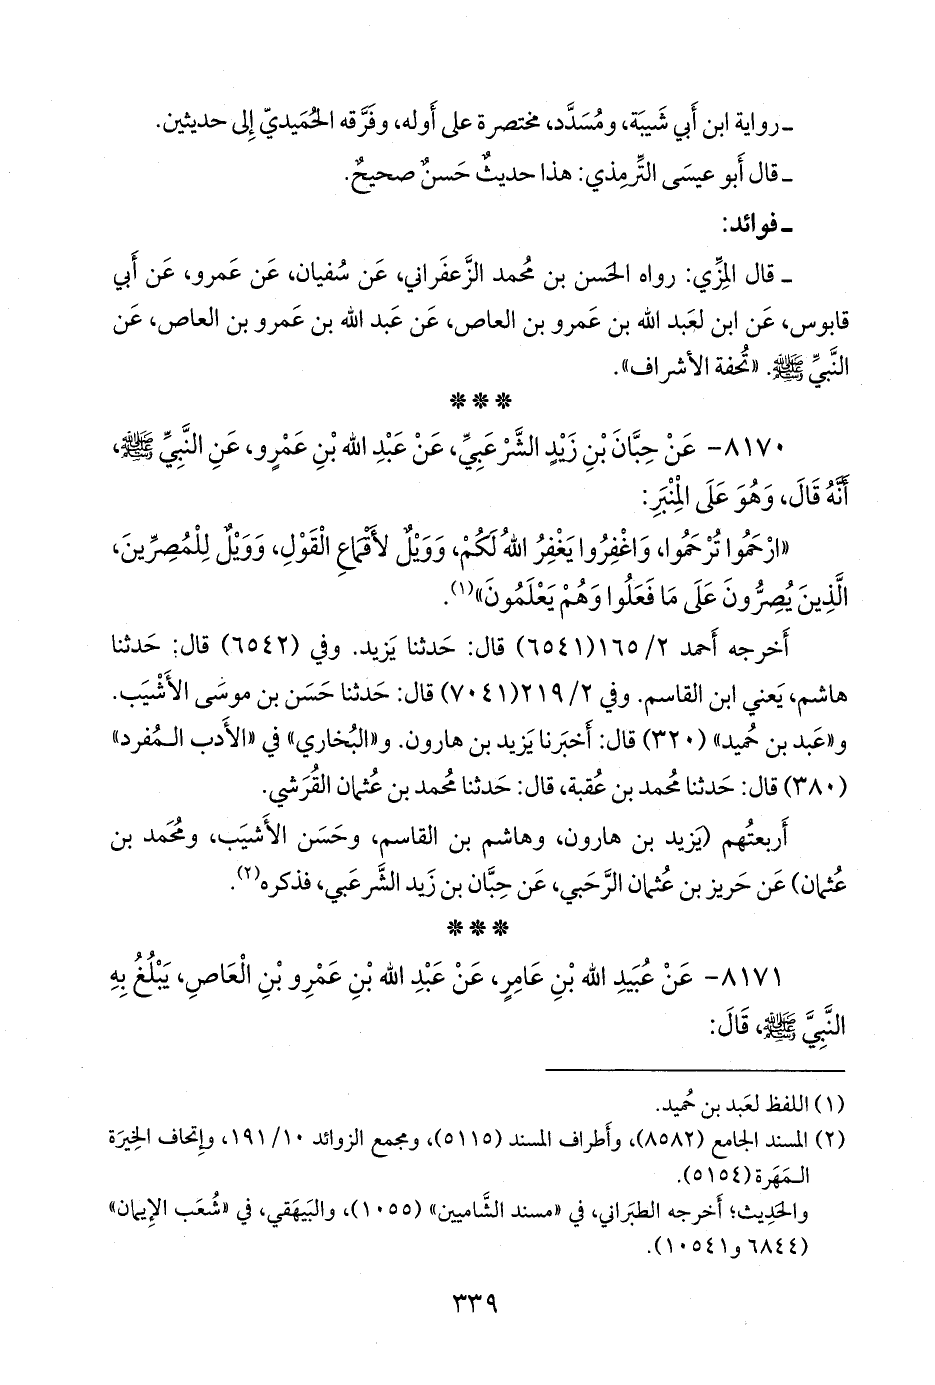 ـ رواية ابن أَبي شَيبَة، ومُسَدَّد، مختصرة على أَوله، وفَرَّقه الحُمَيديّ إِلى حديثين.
ـ قال أَبو عيسَى التِّرمِذي: هذا حديثٌ حَسنٌ صحيحٌ.
ـ فوائد:
ـ قال المِزِّي: رواه الحَسن بن مُحمد الزَّعفَراني، عَن سُفيان، عَن عَمرو، عَن أَبي
قابوس، عَن ابن لعَبد الله بن عَمرو بن العاص، عَن عَبد الله بن عَمرو بن العاص، عَن
النَّبيِّ ﷺ. «تُحفة الأشراف».
* * *
٨١٧٠- عَنْ حِبَّانَ بْنِ زَيْدٍ الشَّرْعَبِيِّ، عَنْ عَبْدِ الله بْنِ عَمْرٍو، عَنِ النَّبِيِّ ﷺ،
أَنَّهُ قَالَ، وَهُوَ عَلَى الْمِنْبَرِ:
«ارْحَمُوا تُرْحَمُوا، وَاغْفِرُوا يَغْفِرُ اللهُ لَكُمْ، وَوَيْلٌ لأَقْمَاعِ الْقَوْلِ، وَوَيْلٌ لِلْمُصِرِّينَ،
الَّذِينَ يُصِرُّونَ عَلَى مَا فَعَلُوا وَهُمْ يَعْلَمُونَ»(١).
أَخرجه أَحمد ٢/ ١٦٥(٦٥٤١) قال: حَدثنا يَزيد. وفي (٦٥٤٢) قال: حَدثنا
هاشم، يَعني ابن القاسم. وفي ٢/ ٢١٩(٧٠٤١) قال: حَدثنا حَسَن بن موسَى الأَشْيَب.
و«عَبد بن حُميد» (٣٢٠) قال: أَخبَرنا يَزيد بن هارون. و«البُخاري» في «الأَدب الـمُفرد»
(٣٨٠) قال: حَدثنا مُحمد بن عُقبة، قال: حَدثنا مُحمد بن عُثمان القُرَشي.
أَربعتُهم (يَزيد بن هارون، وهاشم بن القاسم، وحَسَن الأَشيَب، ومُحَمد بن
عُثمان) عَن حَريز بن عُثمان الرَّحَبي، عَن حِبَّان بن زَيد الشَّرعَبي، فذكره(٢).
* * *
٨١٧١- عَنْ عُبَيدِ الله بْنِ عَامِرٍ، عَنْ عَبْدِ الله بْنِ عَمْرِو بْنِ الْعَاصِ، يَبْلُغُ بِهِ
النَّبِيَّ ﷺ، قَالَ:
(١) اللفظ لعَبد بن حُميد.
(٢) المسند الجامع (٨٥٨٢)، وأَطراف المسند (٥١١٥)، ومجمع الزوائد ١٠/ ١٩١، وإتحاف الخِيرَة
الـمَهَرة (٥١٥٤).
والحَدِيث؛ أَخرجه الطبَراني، في «مسند الشَّاميين» (١٠٥٥)، والبَيهَقي، في «شُعَب الإِيمان»
(٦٨٤٤ و١٠٥٤١).
٣٣٩